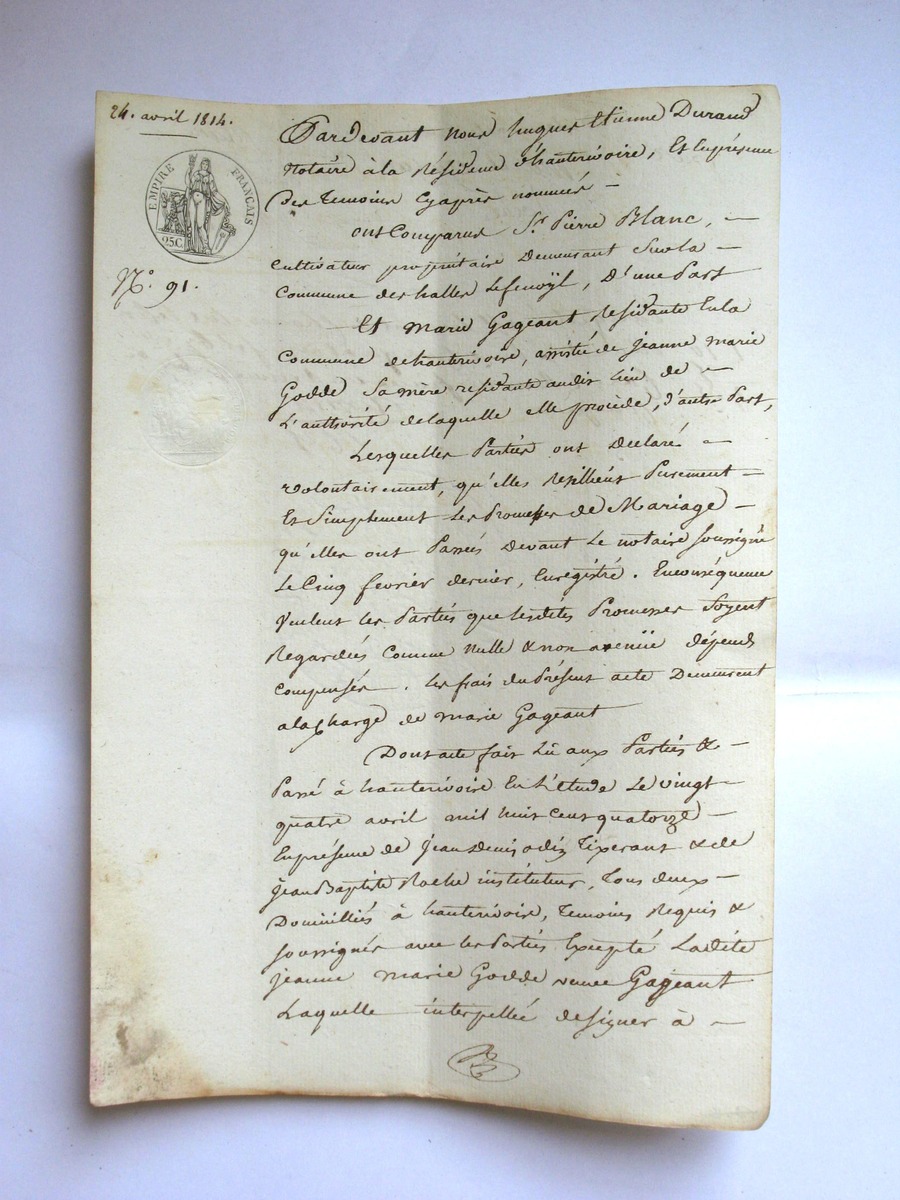 24. avril 1814.
EMPIRE FRANÇAIS
25C
N.° 91.
Pardevant nous hugues Etienne Durand
notaire à la Résidence d'hauterivoire, Et Enprésence
Des temoins Cyaprès nommés –
ont Comparus S.r Pierre Blanc, –
cultivateur propriétaire Demeurant Sur la –
Commune des halles Lefenoÿl, D'une Part
Et marie Gageant Residante En la
Commune dehauterivoire, assistée de jeanne marie
Godde Sa mère residante audit lieu de –
L'authorité delaquelle elle procède, d'autre Part,
Lesquelles Parties ont Declaré –
volontairement, qu'elles Resilient Purement –
Et Simplement les Promesses de Mariage –
qu'elles ont Passés Devant Le notaire soussigné
Le Cinq fevrier dernier, Enregistré. Enconséquence
Veulent les Parties que lesdites Promesses soyent
Regardées Comme nulle & non avenüe dépends
compensés. les frais du Présent acte Demeurent
alacharge de marie Gageant
Dont acte fait Lû aux Parties & –
Passé à hauterivoire En l'étude Le vingt –
quatre avril mil huit Cent quatorze –
Enprésence de jean Denis Tixerant & de
jean Baptiste Roche instituteur, Tous deux –
Domiciliés à hauterivoire, Temoins Requis &
soussignés avec les Parties Excepté Ladite
jeanne marie Godde veuve Gageant
Laquelle interpellée designer à –